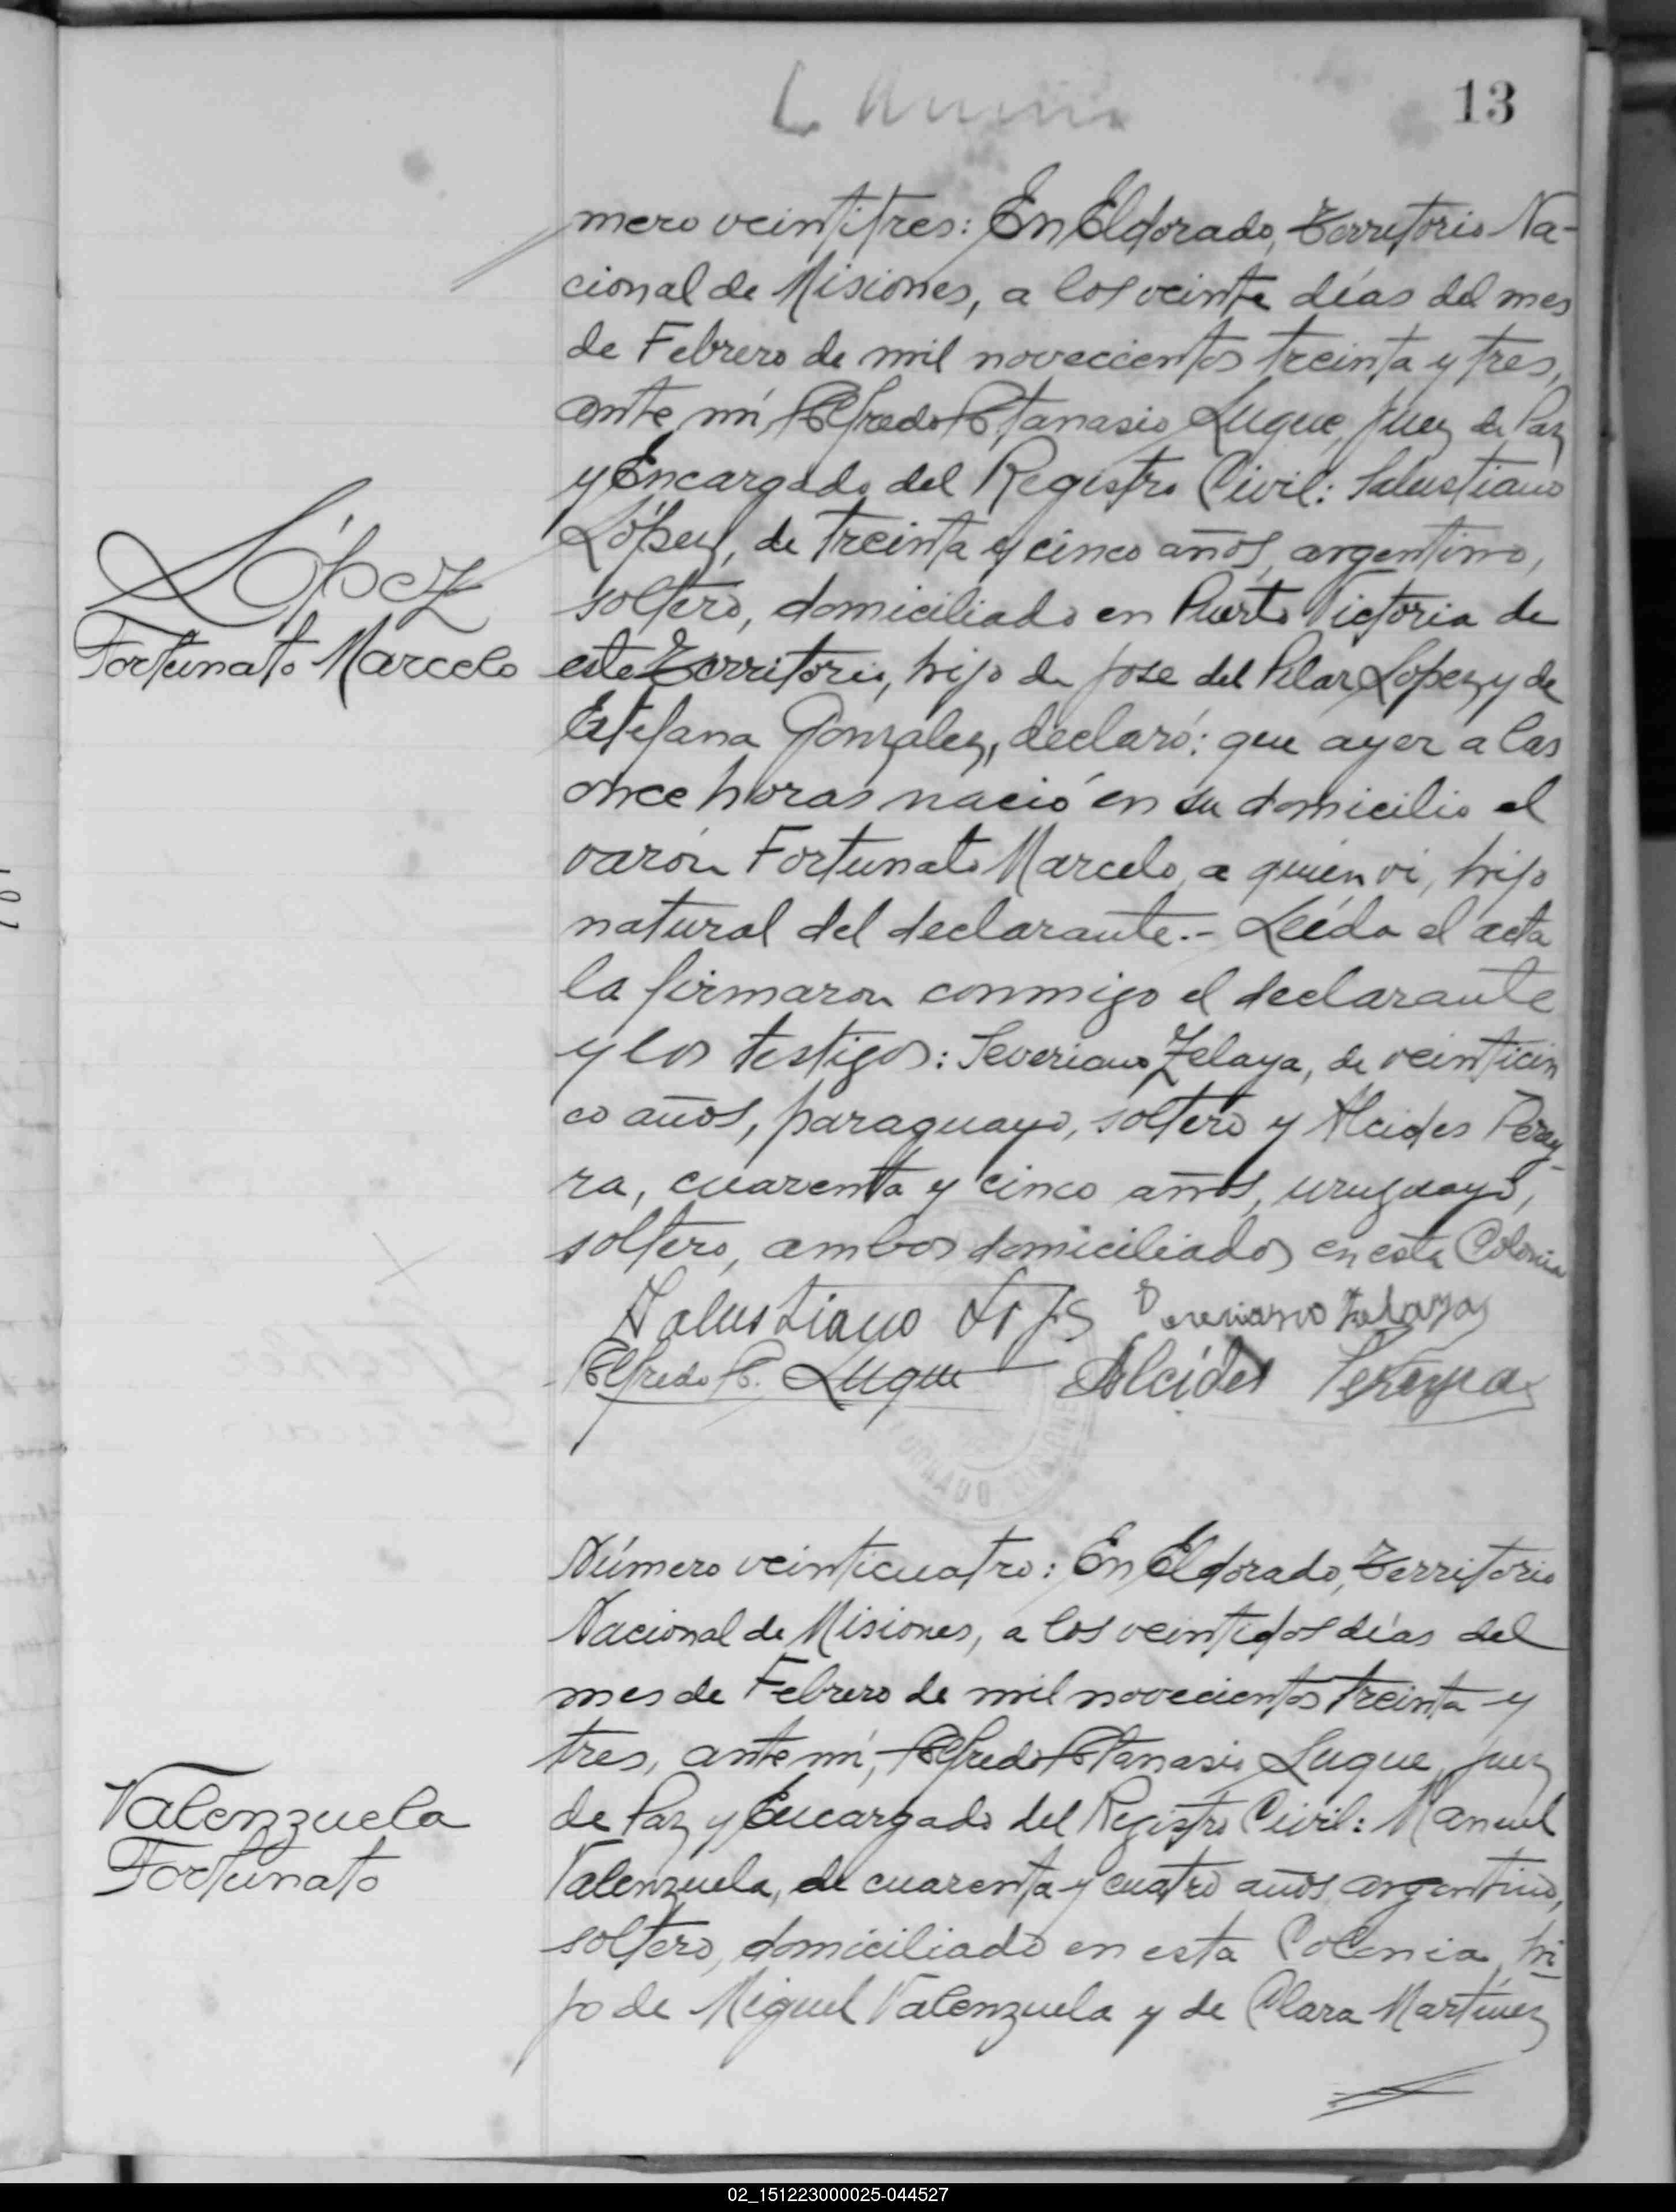 13
mero veintitres: En Eldorado, Territorio Na-
cional de Misiones, a los veinte días del mes
de Febrero de mil novecientos treinta y tres,
ante mí, Alfredo Atanasio Luque, Juez de Paz
y Encargado del Registro Civil: Salustiano
López, de treinta y cinco años, argentino,
soltero, domiciliado en Puerto Victoria de
este Territorio, hijo de José del Pilar López y de
Estefana Gonzalez, declaró: que ayer a las
once horas nació en su domicilio el
varón Fortunato Marcelo, a quien vi, hijo
natural del declarante.- Leída el acta
la firmaron conmigo el declarante
y los testigos: Severiano Zelaya, de veinticin
co años, paraguayo, soltero y Alcides Perey-
ra, cuarenta y cinco años, uruguayo,
soltero, ambos domiciliados en esta Colonia
López
Fortunato Marcelo
Salustiano Severiano Zelaya
Alfredo A. Luque Alcides Pereyra
Número veinticuatro: En Eldorado, Territorio
Nacional de Misiones, a los veintidos días del
mes de Febrero de mil novecientos treinta y
tres, ante mí, Alfredo Atanasio Luque, Juez
de Paz y Encargado del Registro Civil: Manuel
Valenzuela, de cuarenta y cuatro años, argentino,
soltero, domiciliado en esta Colonia, hi-
jo de Miguel Valenzuela y de Clara Martínez
Valenzuela
Fortunato
02_151223000025-044527